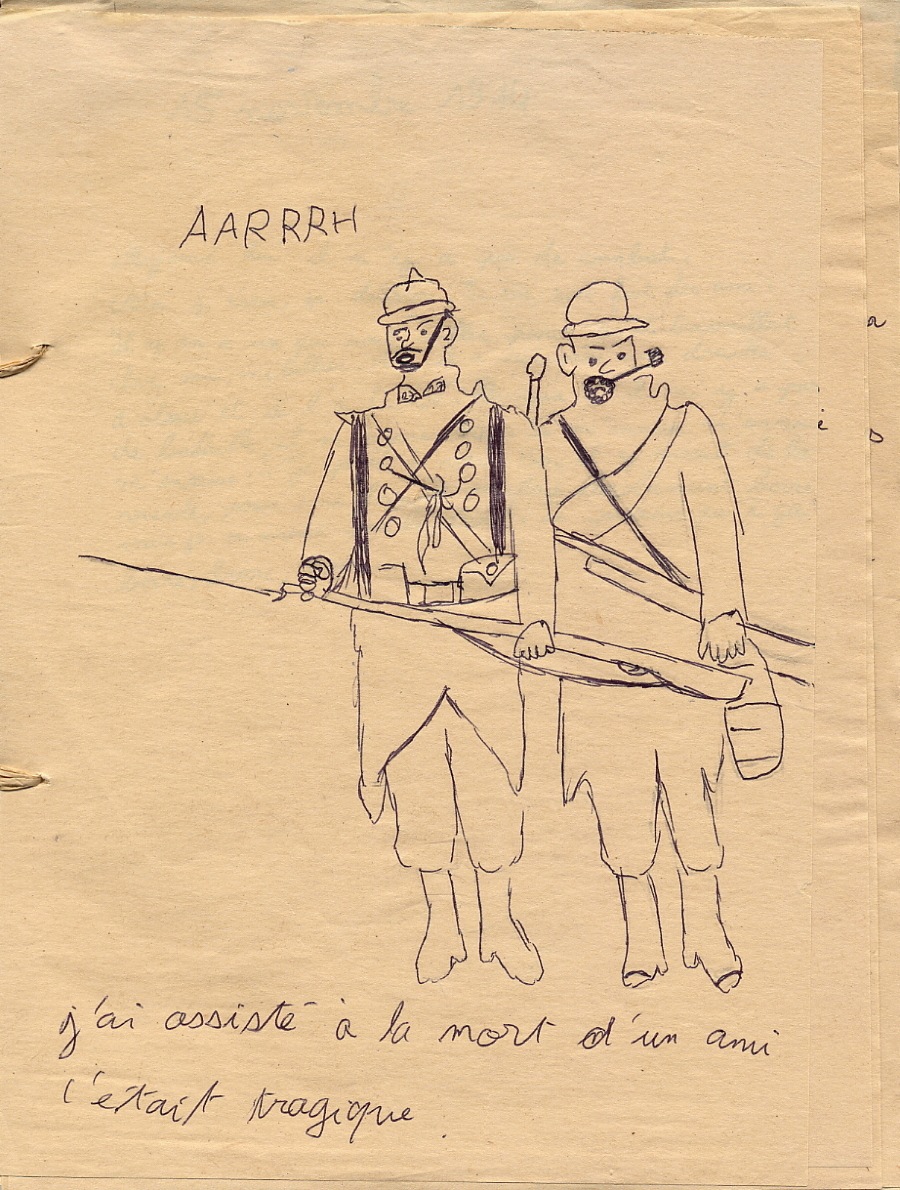 AARRRH
j'ai assisté à la mort d'un ami
c'était tragique.